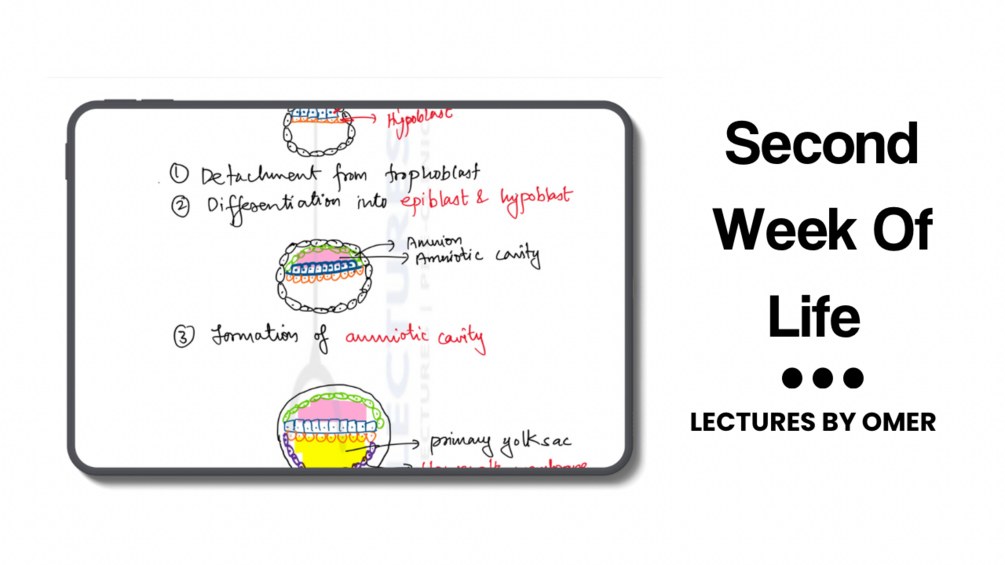 Hypoblast
① Detachment from trophoblast
② Differentiation into epiblast & hypoblast
Amnion
Amniotic cavity
③ formation of amniotic cavity
primary yolk sac
Second
Week Of
Life
LECTURES BY OMER